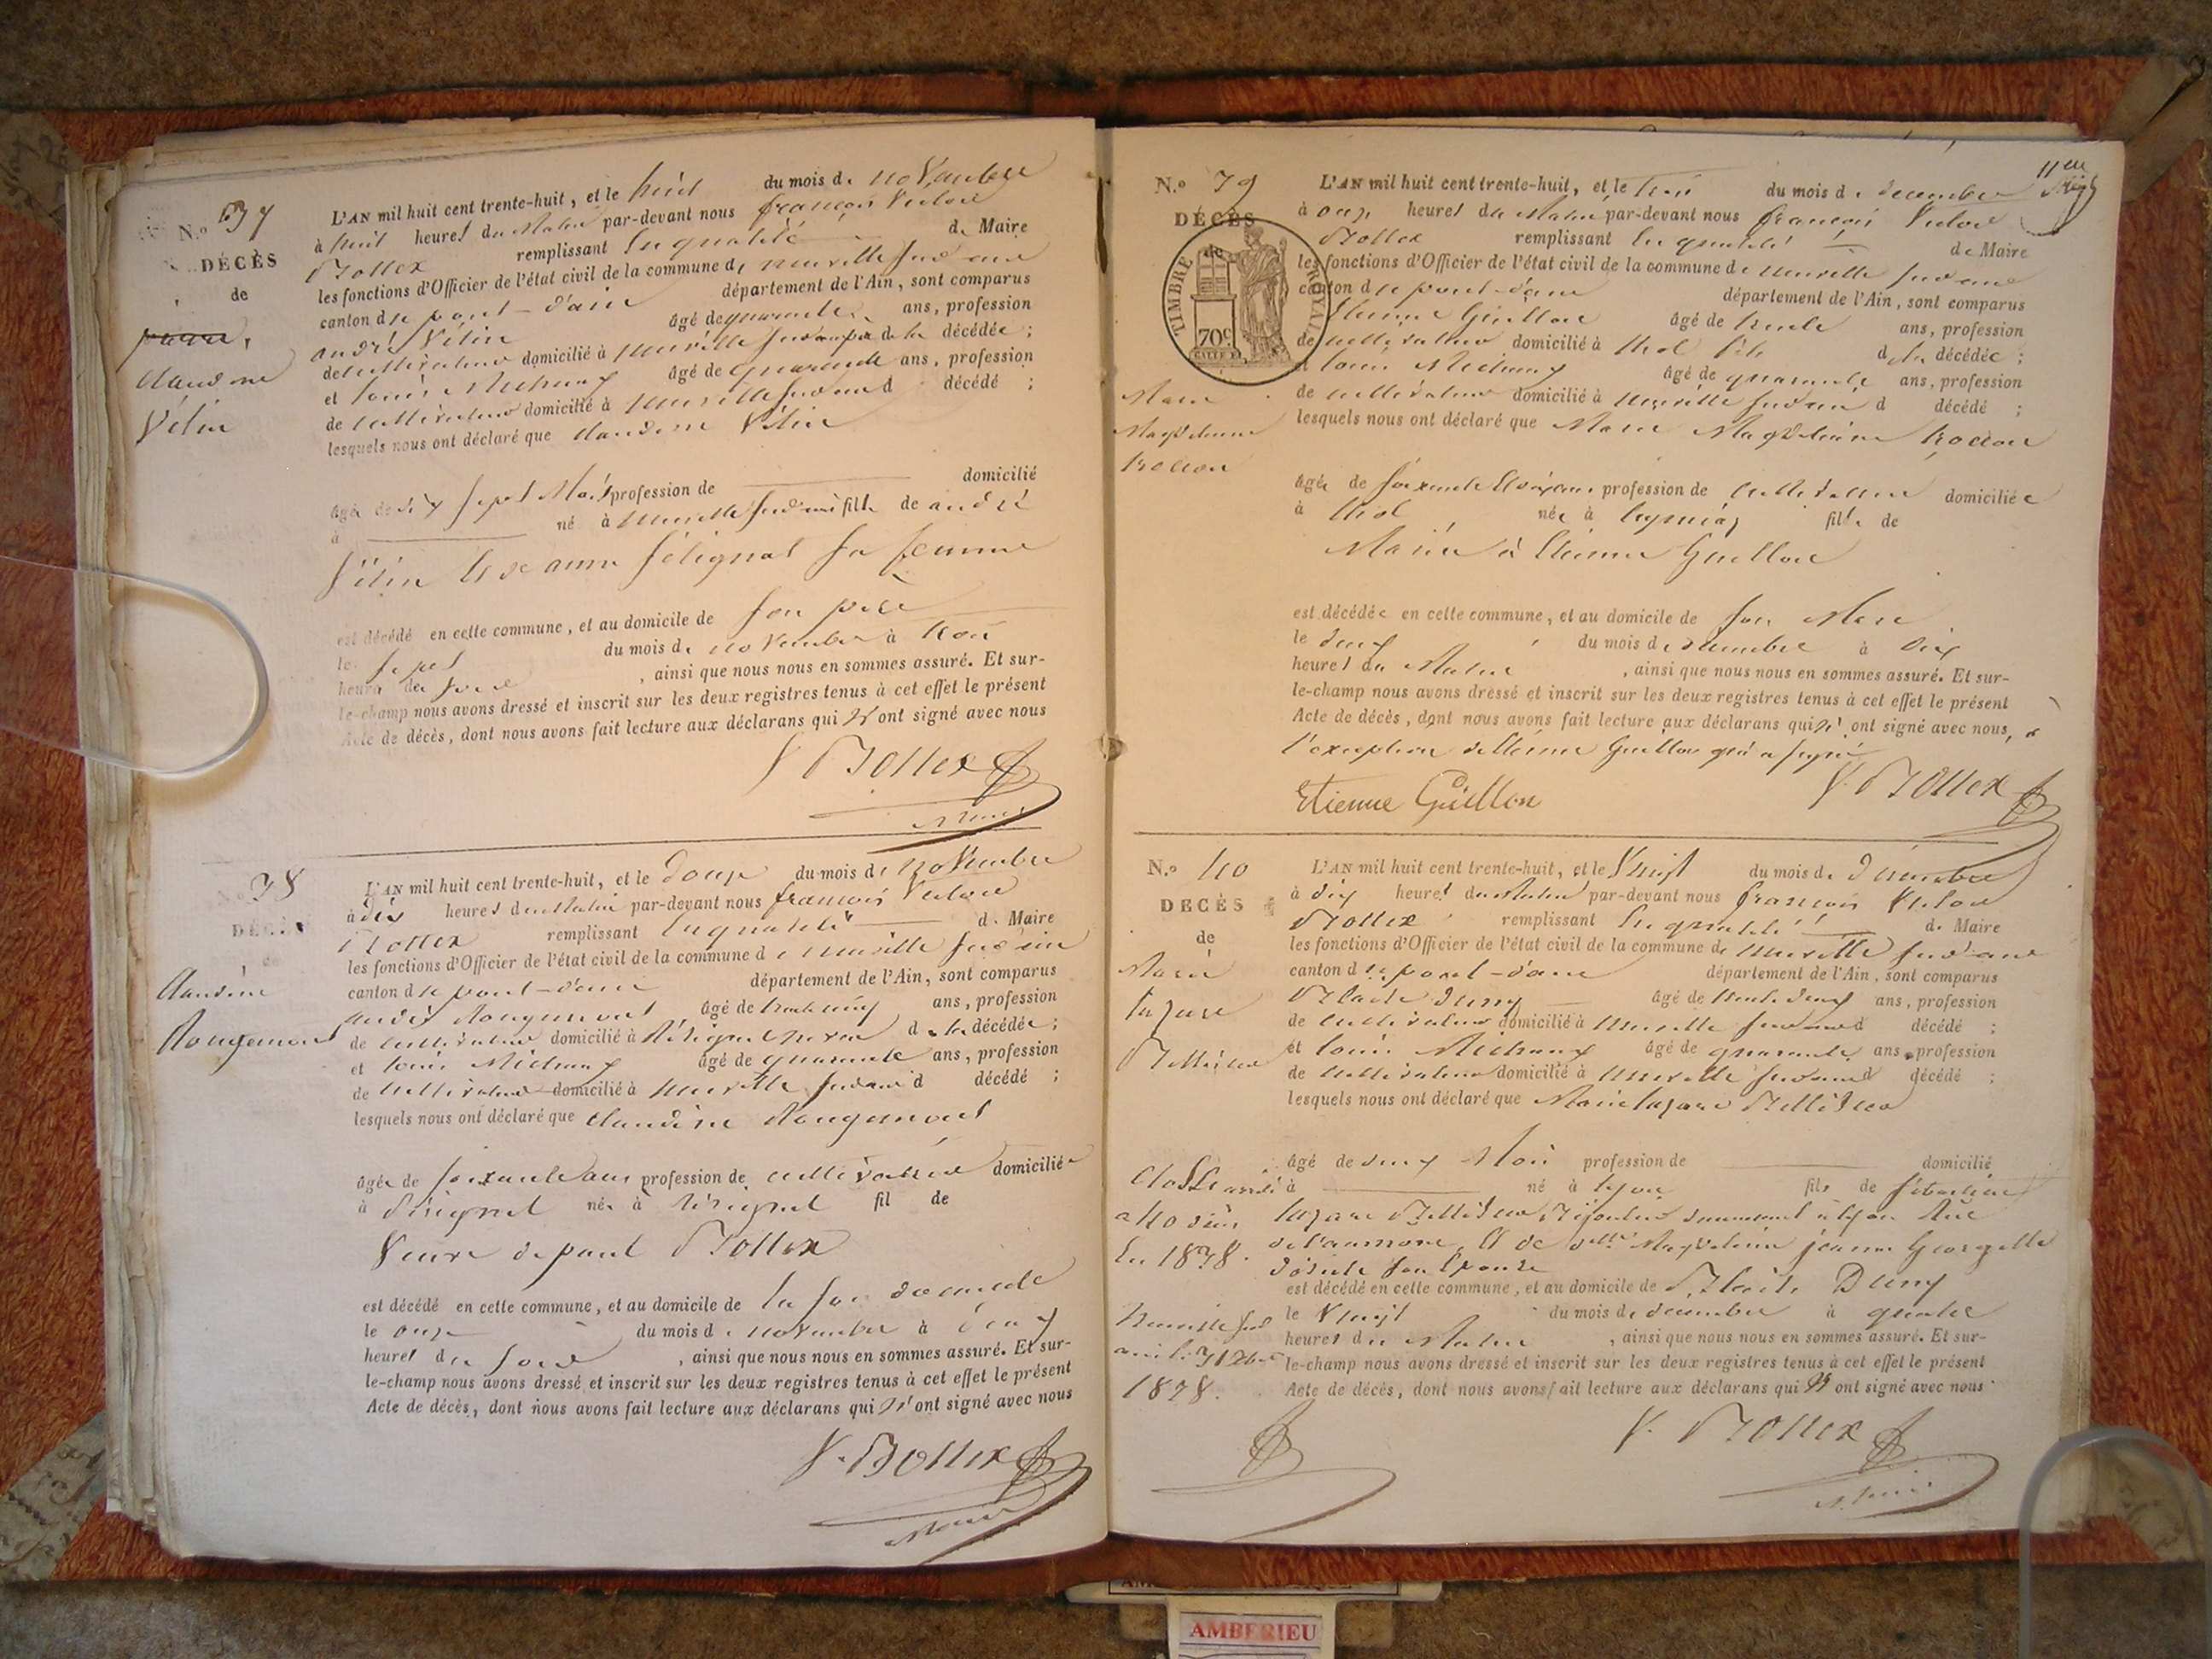 N.º 37
DÉCÈS
de
Claudine
Vélin
L'AN mil huit cent trente-huit, et le huit du mois de novembre
à huit heures du Matin par-devant nous françois Victor
Bollex remplissant en qualité de Maire
les fonctions d'Officier de l'état civil de la commune de neuville sur ain
canton de pont-d'ain département de l'Ain, sont comparus
andré Vélin âgé de quarante ans, profession
de cultivateur domicilié à neuville sur ain père de la décédée ;
et louis Michaux âgé de quarante ans, profession
de cultivateur domicilié à neuville sur ain d décédé ;
lesquels nous ont déclaré que claudine Vélin
âgée de dix sept Mois profession de domicilié
à né à neuville sur ain fille de andré
Vélin et de anne félignat sa femme
est décédé en cette commune, et au domicile de son père
le sept du mois de novembre à
heures du soir , ainsi que nous nous en sommes assuré. Et sur-
le-champ nous avons dressé et inscrit sur les deux registres tenus à cet effet le présent
Acte de décès, dont nous avons fait lecture aux déclarans qui n'ont signé avec nous
V Bollex
38
DÉCÈS
Claudine
Rougemont
L'AN mil huit cent trente-huit, et le douze du mois de novembre
à dix heures du Matin par-devant nous françois Victor
Bollex remplissant en qualité de Maire
les fonctions d'Officier de l'état civil de la commune de neuville sur ain
canton de pont-d'ain département de l'Ain, sont comparus
andré Rougemont âgé de ans, profession
de cultivateur domicilié à de la décédée ;
et louis Michaux âgé de quarante ans, profession
de cultivateur domicilié à neuville sur ain d décédé ;
lesquels nous ont déclaré que claudine Rougemont
âgée de soixante ans profession de cultivatrice domiciliée
à née à fil de
Veuve de paul Bollex
est décédé en cette commune, et au domicile de
le onze du mois de novembre à
heures du soir , ainsi que nous nous en sommes assuré. Et sur-
le-champ nous avons dressé et inscrit sur les deux registres tenus à cet effet le présent
Acte de décès, dont nous avons fait lecture aux déclarans qui n'ont signé avec nous
V. Bollex
11eme
N.º 39
DÉCÈS
de
TIMBRE ROYAL
70c.
Marie
Magdeleine
L'AN mil huit cent trente-huit, et le trois du mois de decembre
à onze heures du Matin par-devant nous françois Victor
Bollex remplissant en qualité de Maire
les fonctions d'Officier de l'état civil de la commune de neuville sur ain
canton de pont-d'ain département de l'Ain, sont comparus
Etienne Guillon âgé de trente ans, profession
de cultivateur domicilié à thol fils de la décédée ;
et louis Michaux âgé de quarante ans, profession
de cultivateur domicilié à neuville sur ain d décédé ;
lesquels nous ont déclaré que Marie Magdeleine
âgée de profession de cultivatrice domiciliée
à thol née à fille de
Mariée à Etienne Guillon
est décédée en cette commune, et au domicile de son Mari
le deux du mois de décembre à dix
heures du Matin , ainsi que nous nous en sommes assuré. Et sur-
le-champ nous avons dressé et inscrit sur les deux registres tenus à cet effet le présent
Acte de décès, dont nous avons fait lecture aux déclarans qui n'ont signé avec nous, à
l'exception d'Etienne Guillon qui a signé
Etienne Guillon
V. Bollex
N.º 40
DÉCÈS
de
Marie
lazare
L'AN mil huit cent trente-huit, et le Vingt du mois de Décembre
à dix heures du Matin par-devant nous françois Victor
Bollex remplissant en qualité de Maire
les fonctions d'Officier de l'état civil de la commune de neuville sur ain
canton de pont-d'ain département de l'Ain, sont comparus
Dumy âgé de trente deux ans, profession
de cultivateur domicilié à neuville sur ain d décédé ;
et louis Michaux âgé de quarante ans, profession
de cultivateur domicilié à neuville sur ain d décédé ;
lesquels nous ont déclaré que Marie lazare
âgé de deux Mois profession de domicilié
à né à lyon fils de sébastien
lazare demeurant à lyon Rue
de l'aumone, et de delle Magdeleine jeanne
son épouse
est décédé en cette commune, et au domicile de Dumy
le Vingt du mois de décembre à quatre
heures du Matin , ainsi que nous nous en sommes assuré. Et sur-
le-champ nous avons dressé et inscrit sur les deux registres tenus à cet effet le présent
Acte de décès, dont nous avons fait lecture aux déclarans qui n'ont signé avec nous
Clos et arrêté
à 40 décès
en 1838.
Neuville sur
ain le 31 Xbre
1838.
V. Bollex
AMBERIEU